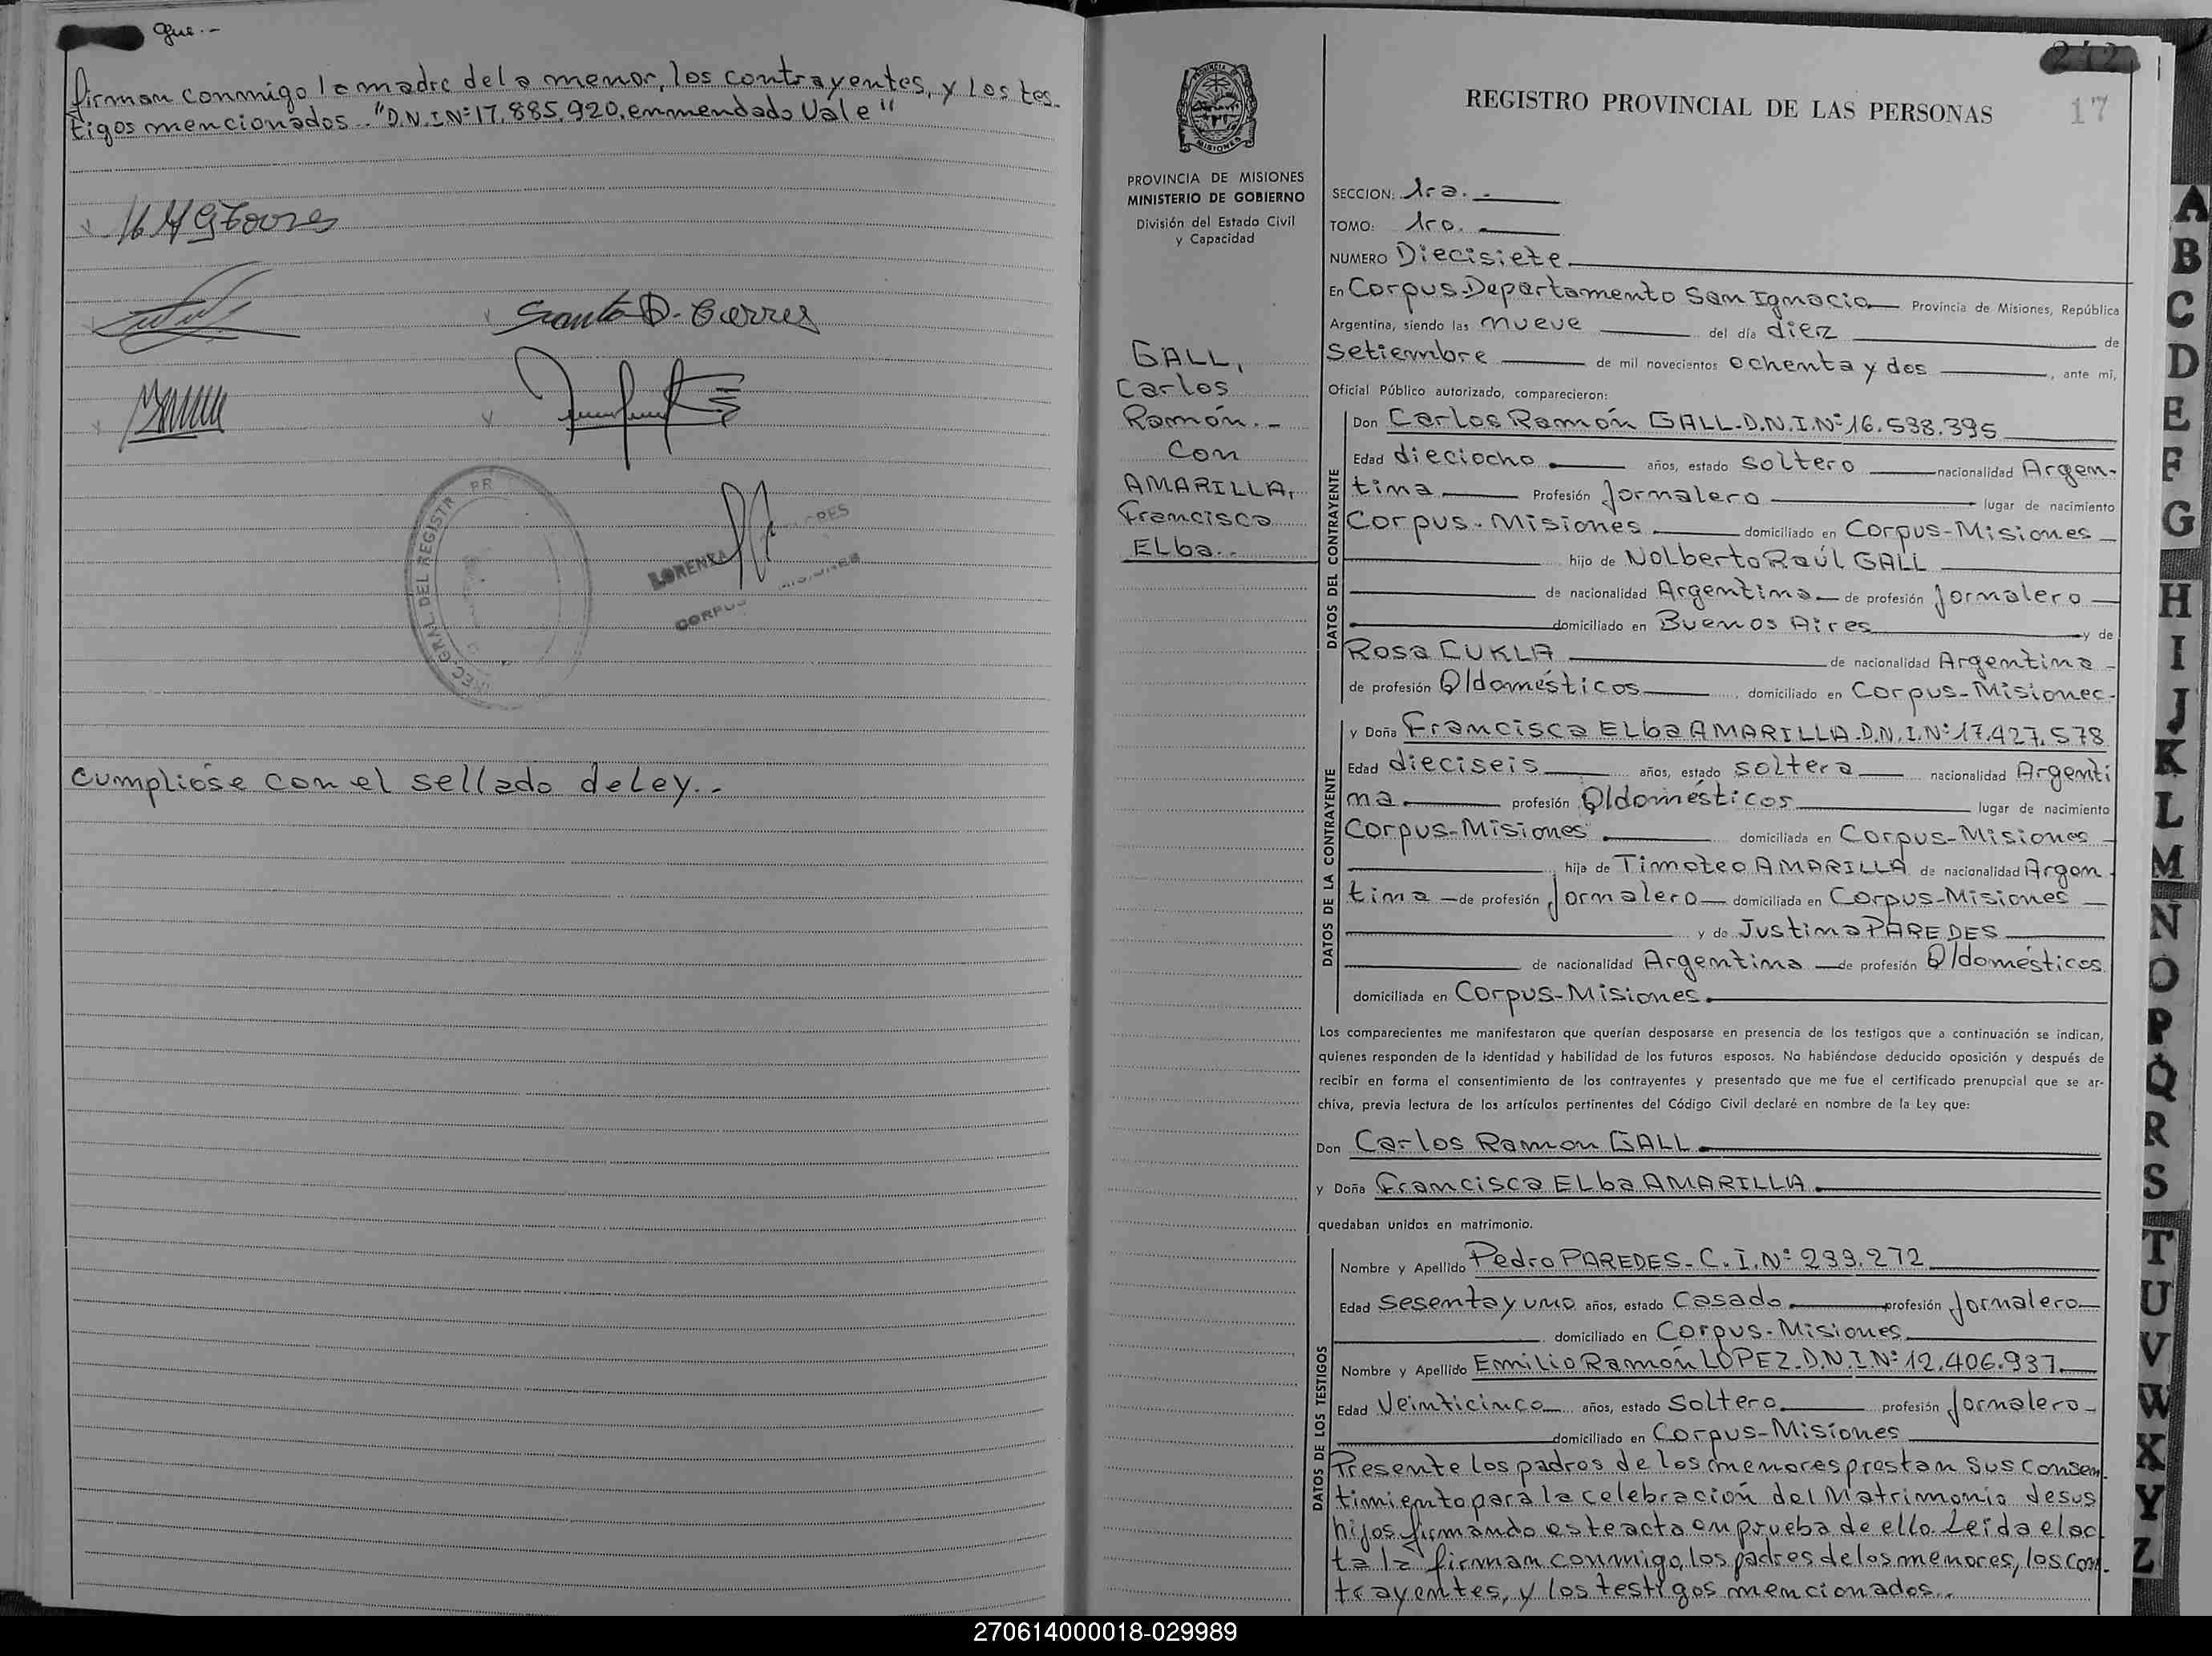 que.-
firman conmigo la madre de la menor, los contrayentes, y los tes-
tigos mencionados.. "D.N.I Nº 17.885.920. enmendado Vale"
Santo D.
DIREC. GRAL. DEL REGISTR PR
LORENZA
CORPUS MISIONES
Cumplióse con el sellado de Ley..-
212
17
REGISTRO PROVINCIAL DE LAS PERSONAS
PROVINCIA DE MISIONES
MINISTERIO DE GOBIERNO
División del Estado Civil
y Capacidad
GALL,
Carlos
Ramón.-
Con
AMARILLA,
Francisca
ELba..
SECCION: 1ra.-
TOMO: 1ro.
NUMERO Diecisiete
En Corpus-Departamento San Ignacio Provincia de Misiones, República
Argentina, siendo las nueve del día diez de
Setiembre de mil novecientos ochenta y dos, ante mi,
Oficial Público autorizado, comparecieron:
DATOS DEL CONTRAYENTE
Don Carlos Ramón GALL-D.N.I.Nº 16.538.395
Edad dieciocho años, estado soltero nacionalidad Argen-
tina Profesión Jornalero lugar de nacimiento
Corpus-Misiones domiciliado en Corpus-Misiones
hijo de Nolberto Raúl GALL
de nacionalidad Argentina de profesión Jornalero
domiciliado en Buenos Aires y de
Rosa CUKLA de nacionalidad Argentina
de profesión Q/domésticos domiciliado en Corpus-Misiones-
DATOS DE LA CONTRAYENTE
y Doña Francisca ELba AMARILLA-D.N.I.Nº 17.427.578
Edad dieciseis años, estado soltera nacionalidad Argenti
na profesión Q/domésticos lugar de nacimiento
Corpus-Misiones domiciliada en Corpus-Misiones
hija de Timoteo AMARILLA de nacionalidad Argen
tina de profesión Jornalero domiciliada en Corpus-Misiones
y de Justina PAREDES
de nacionalidad Argentina de profesión Q/domésticos
domiciliada en Corpus-Misiones
Los comparecientes me manifestaron que querían desposarse en presencia de los testigos que a continuación se indican,
quienes responden de la identidad y habilidad de los futuros esposos. No habiéndose deducido oposición y después de
recibir en forma el consentimiento de los contrayentes y presentado que me fue el certificado prenupcial que se ar-
chiva, previa lectura de los artículos pertinentes del Código Civil declaré en nombre de la Ley que:
Don Carlos Ramon GALL
y Doña Francisca ELba AMARILLA
quedaban unidos en matrimonio.
DATOS DE LOS TESTIGOS
Nombre y Apellido Pedro PAREDES-C.I.Nº 233.272
Edad Sesenta y uno años, estado Casado profesión Jornalero
domiciliado en Corpus-Misiones
Nombre y Apellido Emilio Ramón LOPEZ-D.N.I Nº 12.406.937
Edad Veinticinco años, estado Soltero profesión Jornalero-
domiciliado en Corpus-Misiones
Presente los padres de los menores prestan sus consen-
timiento para la celebración del Matrimonio de sus
hijos firmando este acta en prueba de ello. Leída el ac
ta la firman conmigo, los padres de los menores, los con-
trayentes, y los testigos mencionados..
A
B
C
D
E
F
G
H
I
J
K
L
M
N
O
P
Q
R
S
T
U
V
W
X
Y
Z
270614000018-029989